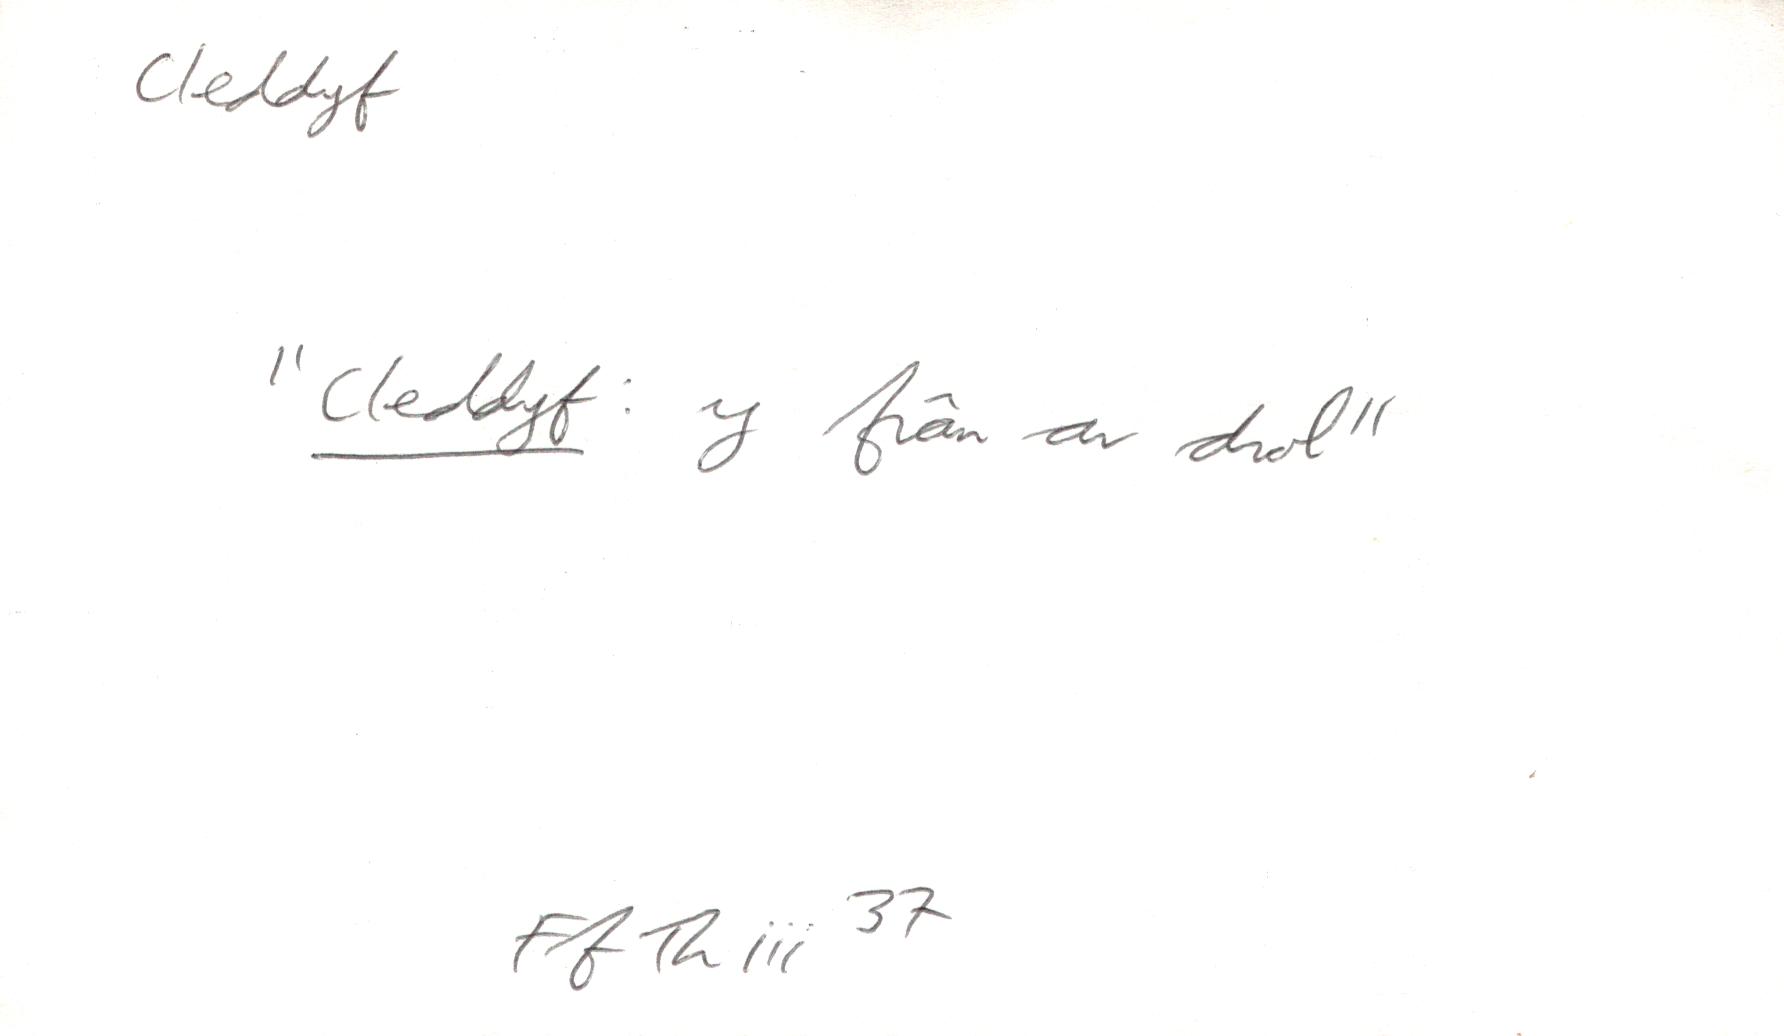 Cleddyf
"Cleddyf: y frân ar drol"
Ff Th iii 37